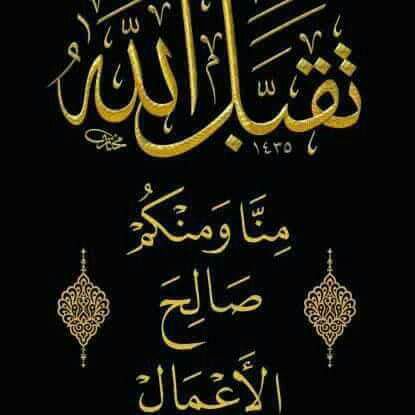 تقبل الله
١٤٣٥
مِنَّا وَمِنْكُمْ
صَالِحَ
الأَعْمَال